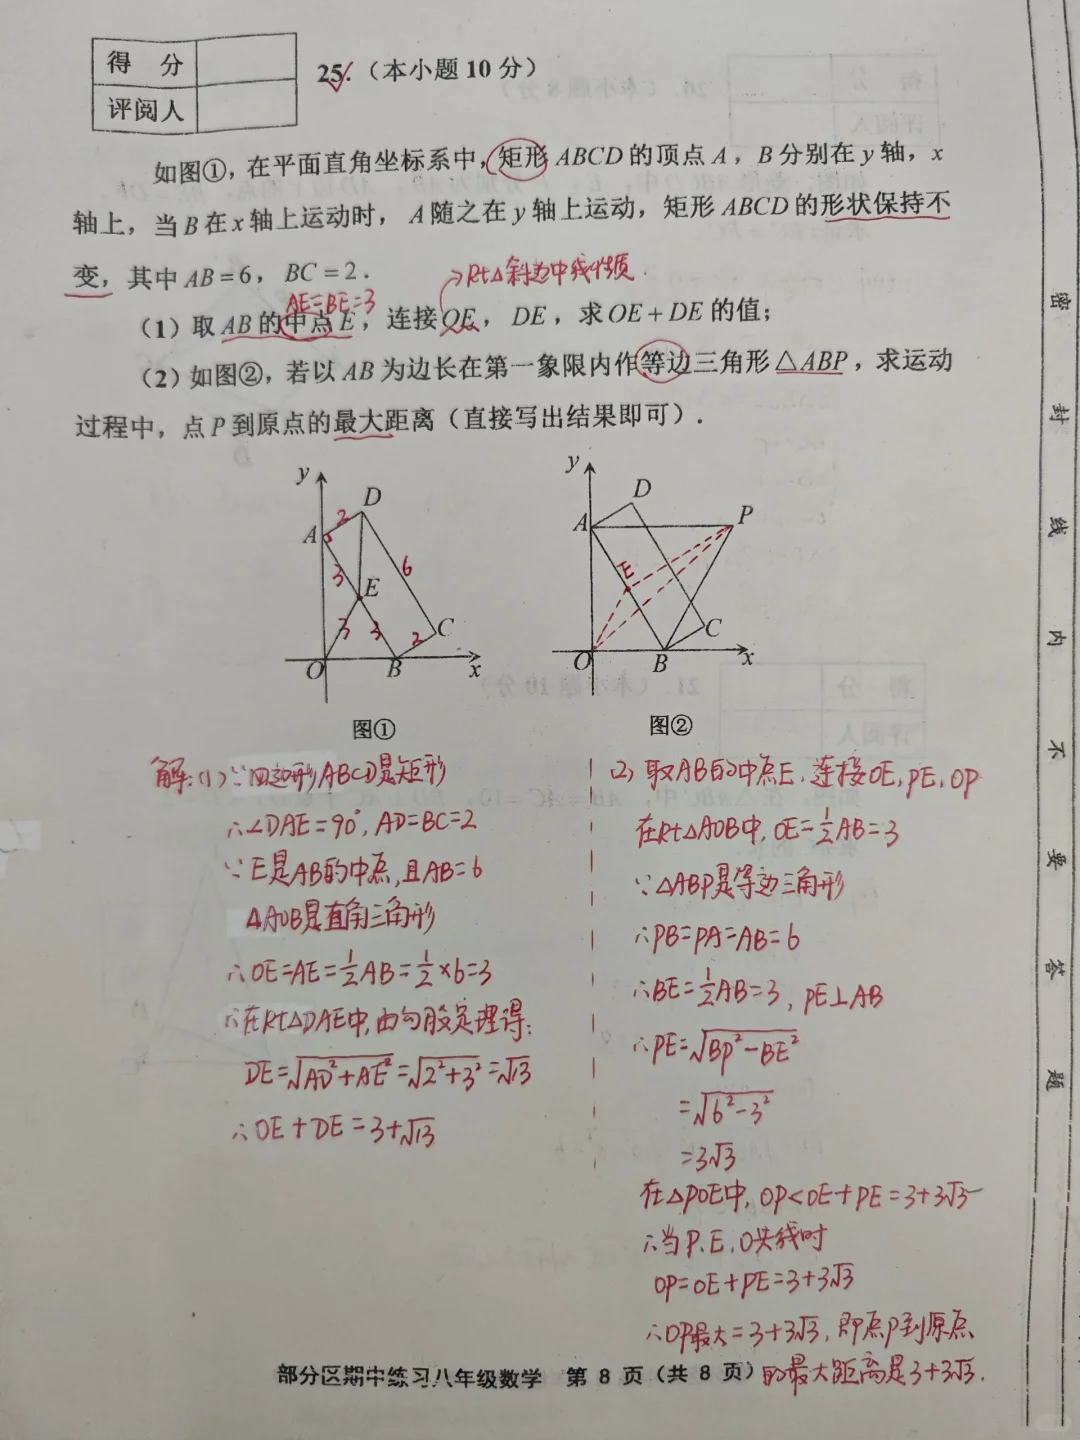 得 分
评阅人
25.（本小题10分）
如图①，在平面直角坐标系中，矩形ABCD的顶点A，B分别在y轴，x
轴上，当B在x轴上运动时，A随之在y轴上运动，矩形ABCD的形状保持不
变，其中AB=6，BC=2．
Rt△斜边中线性质．
AE=BE=3
（1）取AB的中点E，连接OE，DE，求OE+DE的值；
（2）如图②，若以AB为边长在第一象限内作等边三角形△ABP，求运动
过程中，点P到原点的最大距离（直接写出结果即可）．
y
D
A
2
3
6
E
3
3
2
C
O
B
x
图①
y
D
A
P
E
C
O
B
x
图②
解:(1)∵四边形ABCD是矩形
∴∠DAE=90°,AD=BC=2
∵E是AB的中点,且AB=6
△AOB是直角三角形
∴OE=AE=½AB=½×6=3
∴在Rt△DAE中,由勾股定理得:
DE=√AD²+AE²=√2²+3²=√13
∴OE+DE=3+√13
(2)取AB的中点E.连接OE,PE,OP
在Rt△AOB中,OE=½AB=3
∵△ABP是等边三角形
∴PB=PA=AB=6
∴BE=½AB=3,PE⊥AB
∴PE=√BP²-BE²
=√6²-3²
=3√3
在△POE中,OP<OE+PE=3+3√3
∴当P.E.O共线时
OP=OE+PE=3+3√3
∴OP最大=3+3√3,即点P到原点
的最大距离是3+3√3.
部分区期中练习八年级数学 第8页（共8页）
密 封 线 内 不 要 答 题